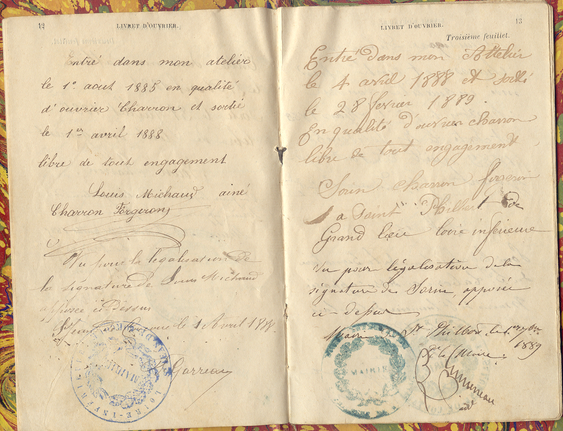 12
LIVRET D'OUVRIER.
Entré dans mon atelier
le 1er aout 1885 en qualité
d'ouvrier Charron et sortié
le 1er avril 1888
libre de tout engagement
Louis Michaud ainé
Charron Forgeron
Vu pour la légalisation de
la signature de Louis Michaud
apposée ci-dessus
le 1 Avril
LOIRE-INFRE
MAIRIE
13
LIVRET D'OUVRIER.
Troisième feuillet.
Entré dans mon Attelier
le 4 avril 1888 et sorti
le 28 fevrier 1889.
En qualité d'ouvrier charron
libre de tout engagement
charron forgeron
a Saint Philbert de
Grand Lieu loire inférieure
Vu pour légalisation de la
signature de apposée
ci-dessus
St Philbert, le
1889
Le Maire
MAIRIE